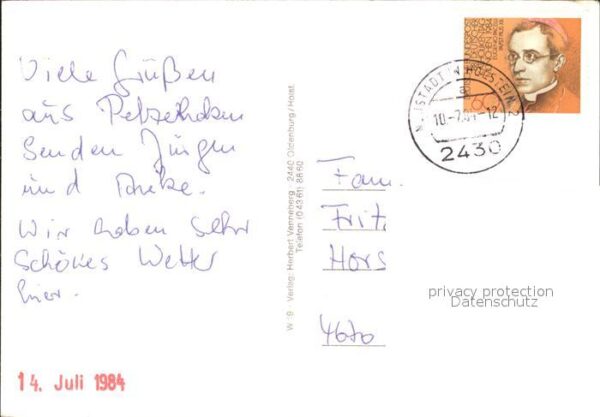 Viele Grüßen
aus Pelzerhaken
Senden Jürgen
und Anke.
Wir haben sehr
schönes Wetter
hier.
14. Juli 1984
W 9 Verlag: Herbert Venneberg 2440 Oldenburg/Holst.
Telefon (04361) 8860
60
NEUSTADT IN HOLSTEIN 2
10.-7.84-12
2430
Fam.
Fritz
Hors
4670
privacy protection
Datenschutz